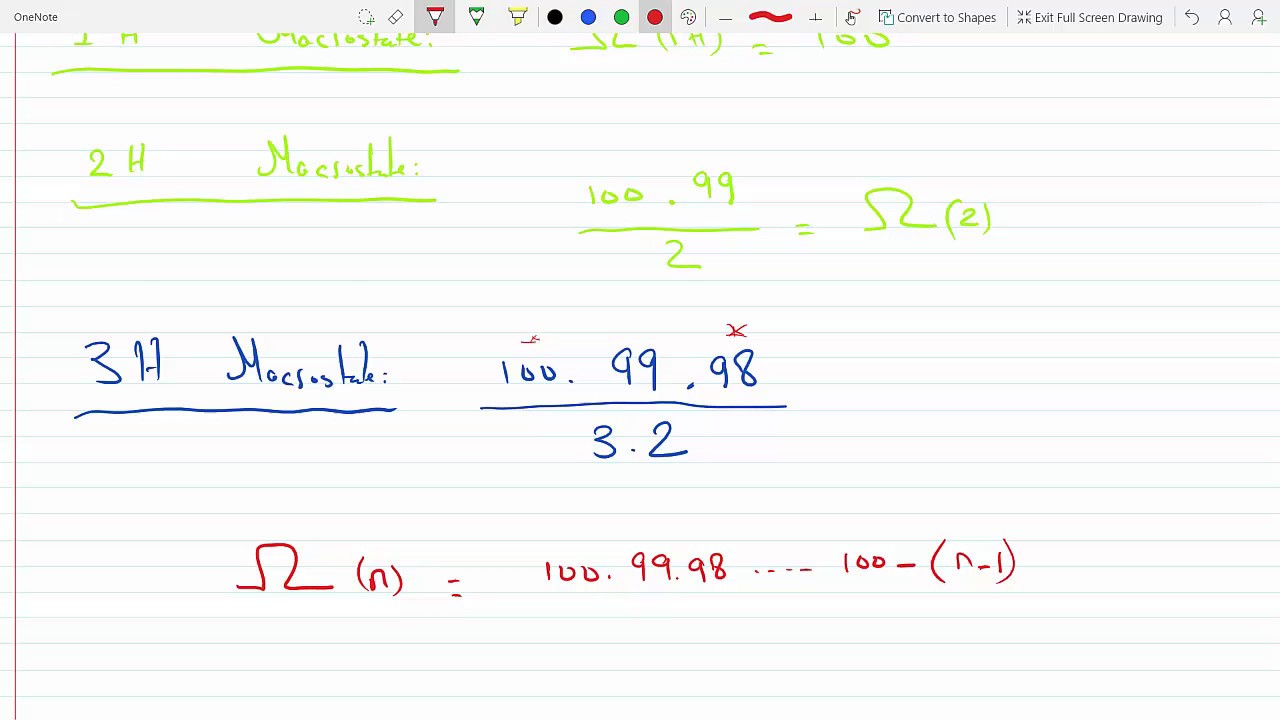 OneNote
Convert to Shapes
Exit Full Screen Drawing
1 H Macrostate: Ω (1H) = 100
2 H Macrostate:
100 . 99
2
= Ω (2)
x x
3 H Macrostate:
100 . 99 . 98
3 . 2
Ω (n) = 100 . 99 . 98 ..... 100 - (n-1)